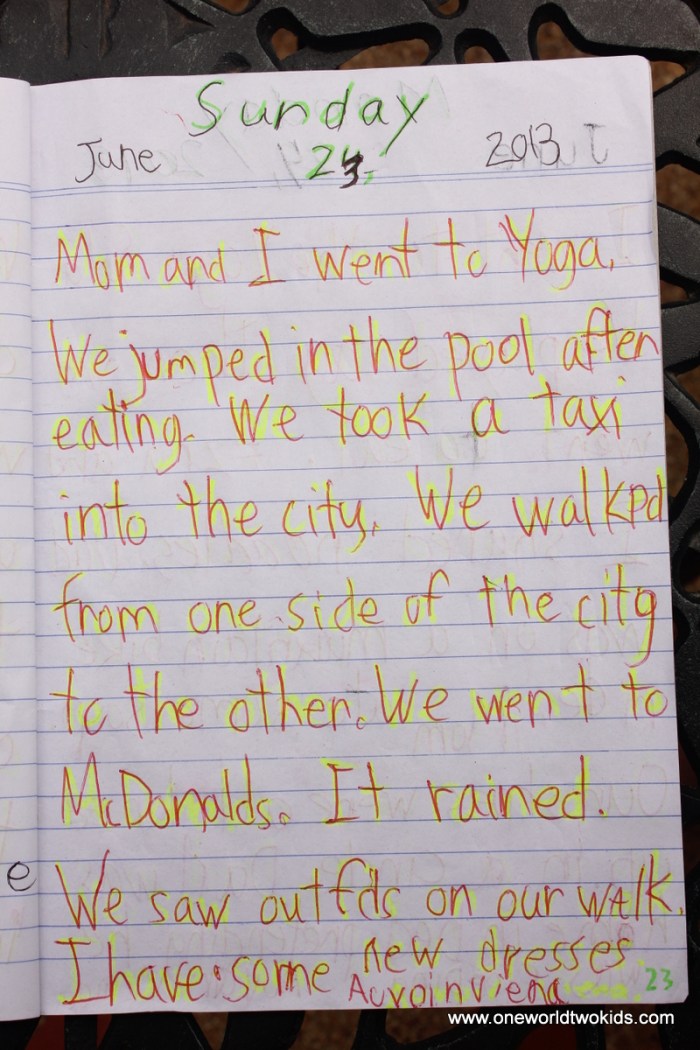 Sunday
June 23, 2013
Mom and I went to Yoga.
We jumped in the pool after
eating. We took a taxi
into the city. We walked
from one side of the city
to the other. We went to
McDonalds. It rained.
e
We saw outfds on our walk.
I have some new dresses
23
www.oneworldtwokids.com